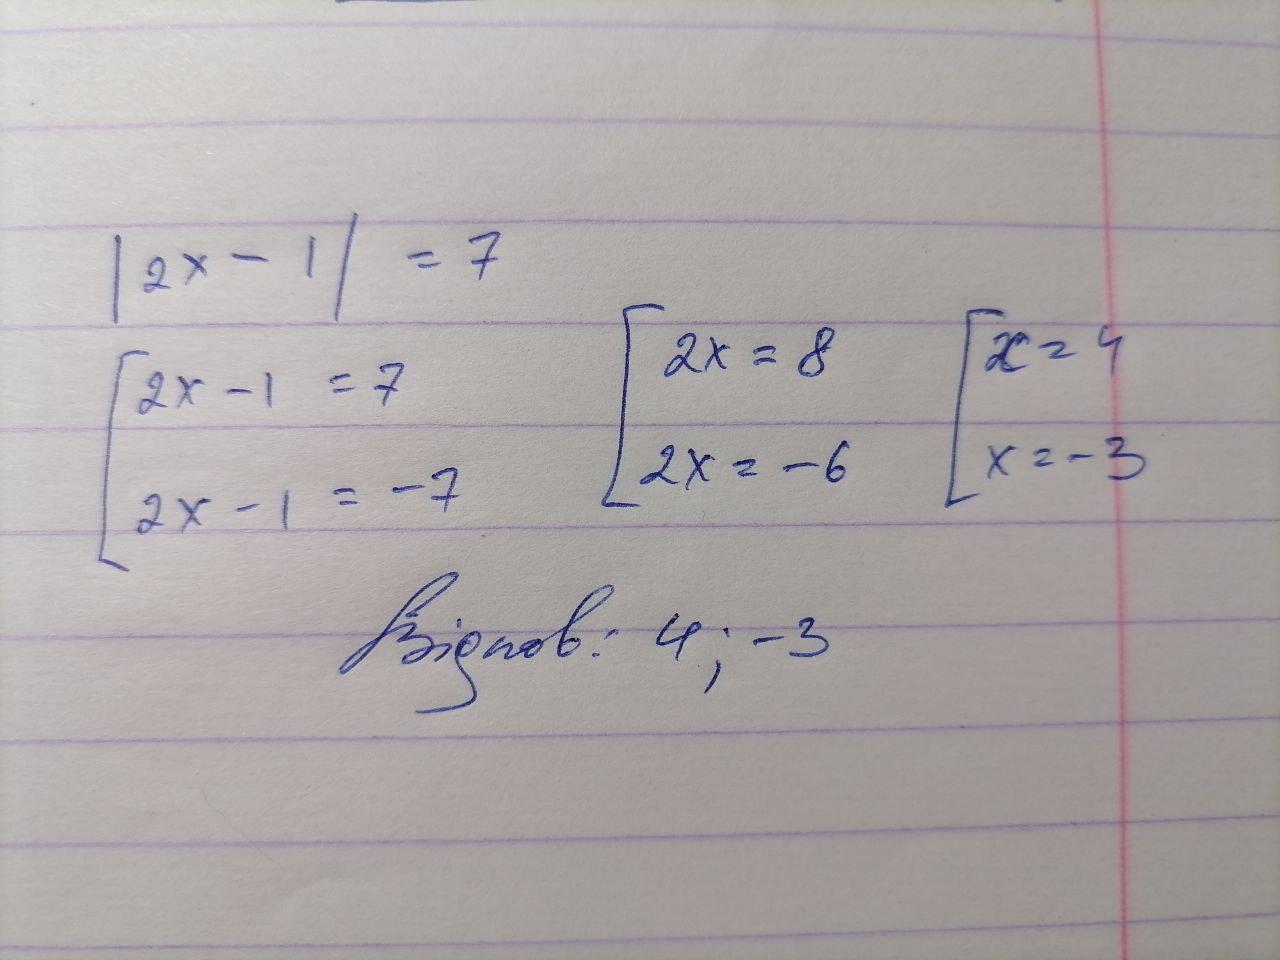 |2x - 1| = 7
[2x - 1 = 7
2x - 1 = -7
[2x = 8
2x = -6
[x = 4
x = -3
Відпов: 4; -3